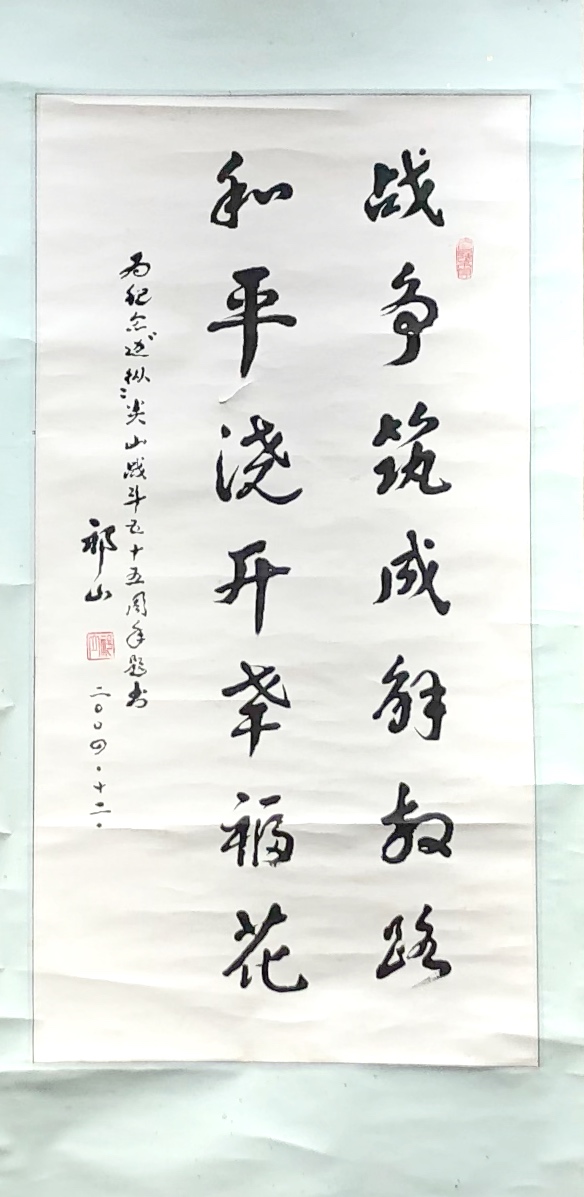 战争筑成解放路
和平浇开幸福花
为纪念边纵尖山战斗五十五周年题书
祁山
二〇〇四·十二·